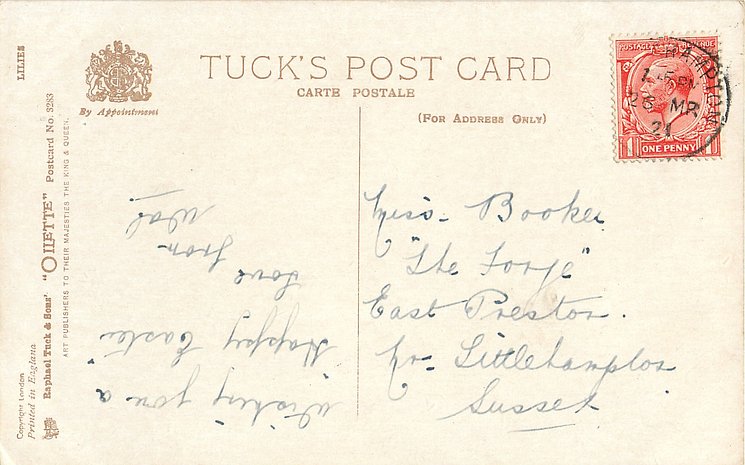 LILIES
"OILETTE" Postcard No. 3283
Raphael Tuck & Sons'.
ART PUBLISHERS TO THEIR MAJESTIES THE KING & QUEEN.
Copyright London
Printed in England
By Appointment
TUCK'S POST CARD
CARTE POSTALE
(FOR ADDRESS ONLY)
POSTAGE REVENUE
ONE PENNY
1 1
HAMPTON
PM
23 MR
21
Wishing you a
Happy Easter
Love
from
Miss. Booker
"The Forge"
East Preston.
Nr. Littlehampton
Sussex